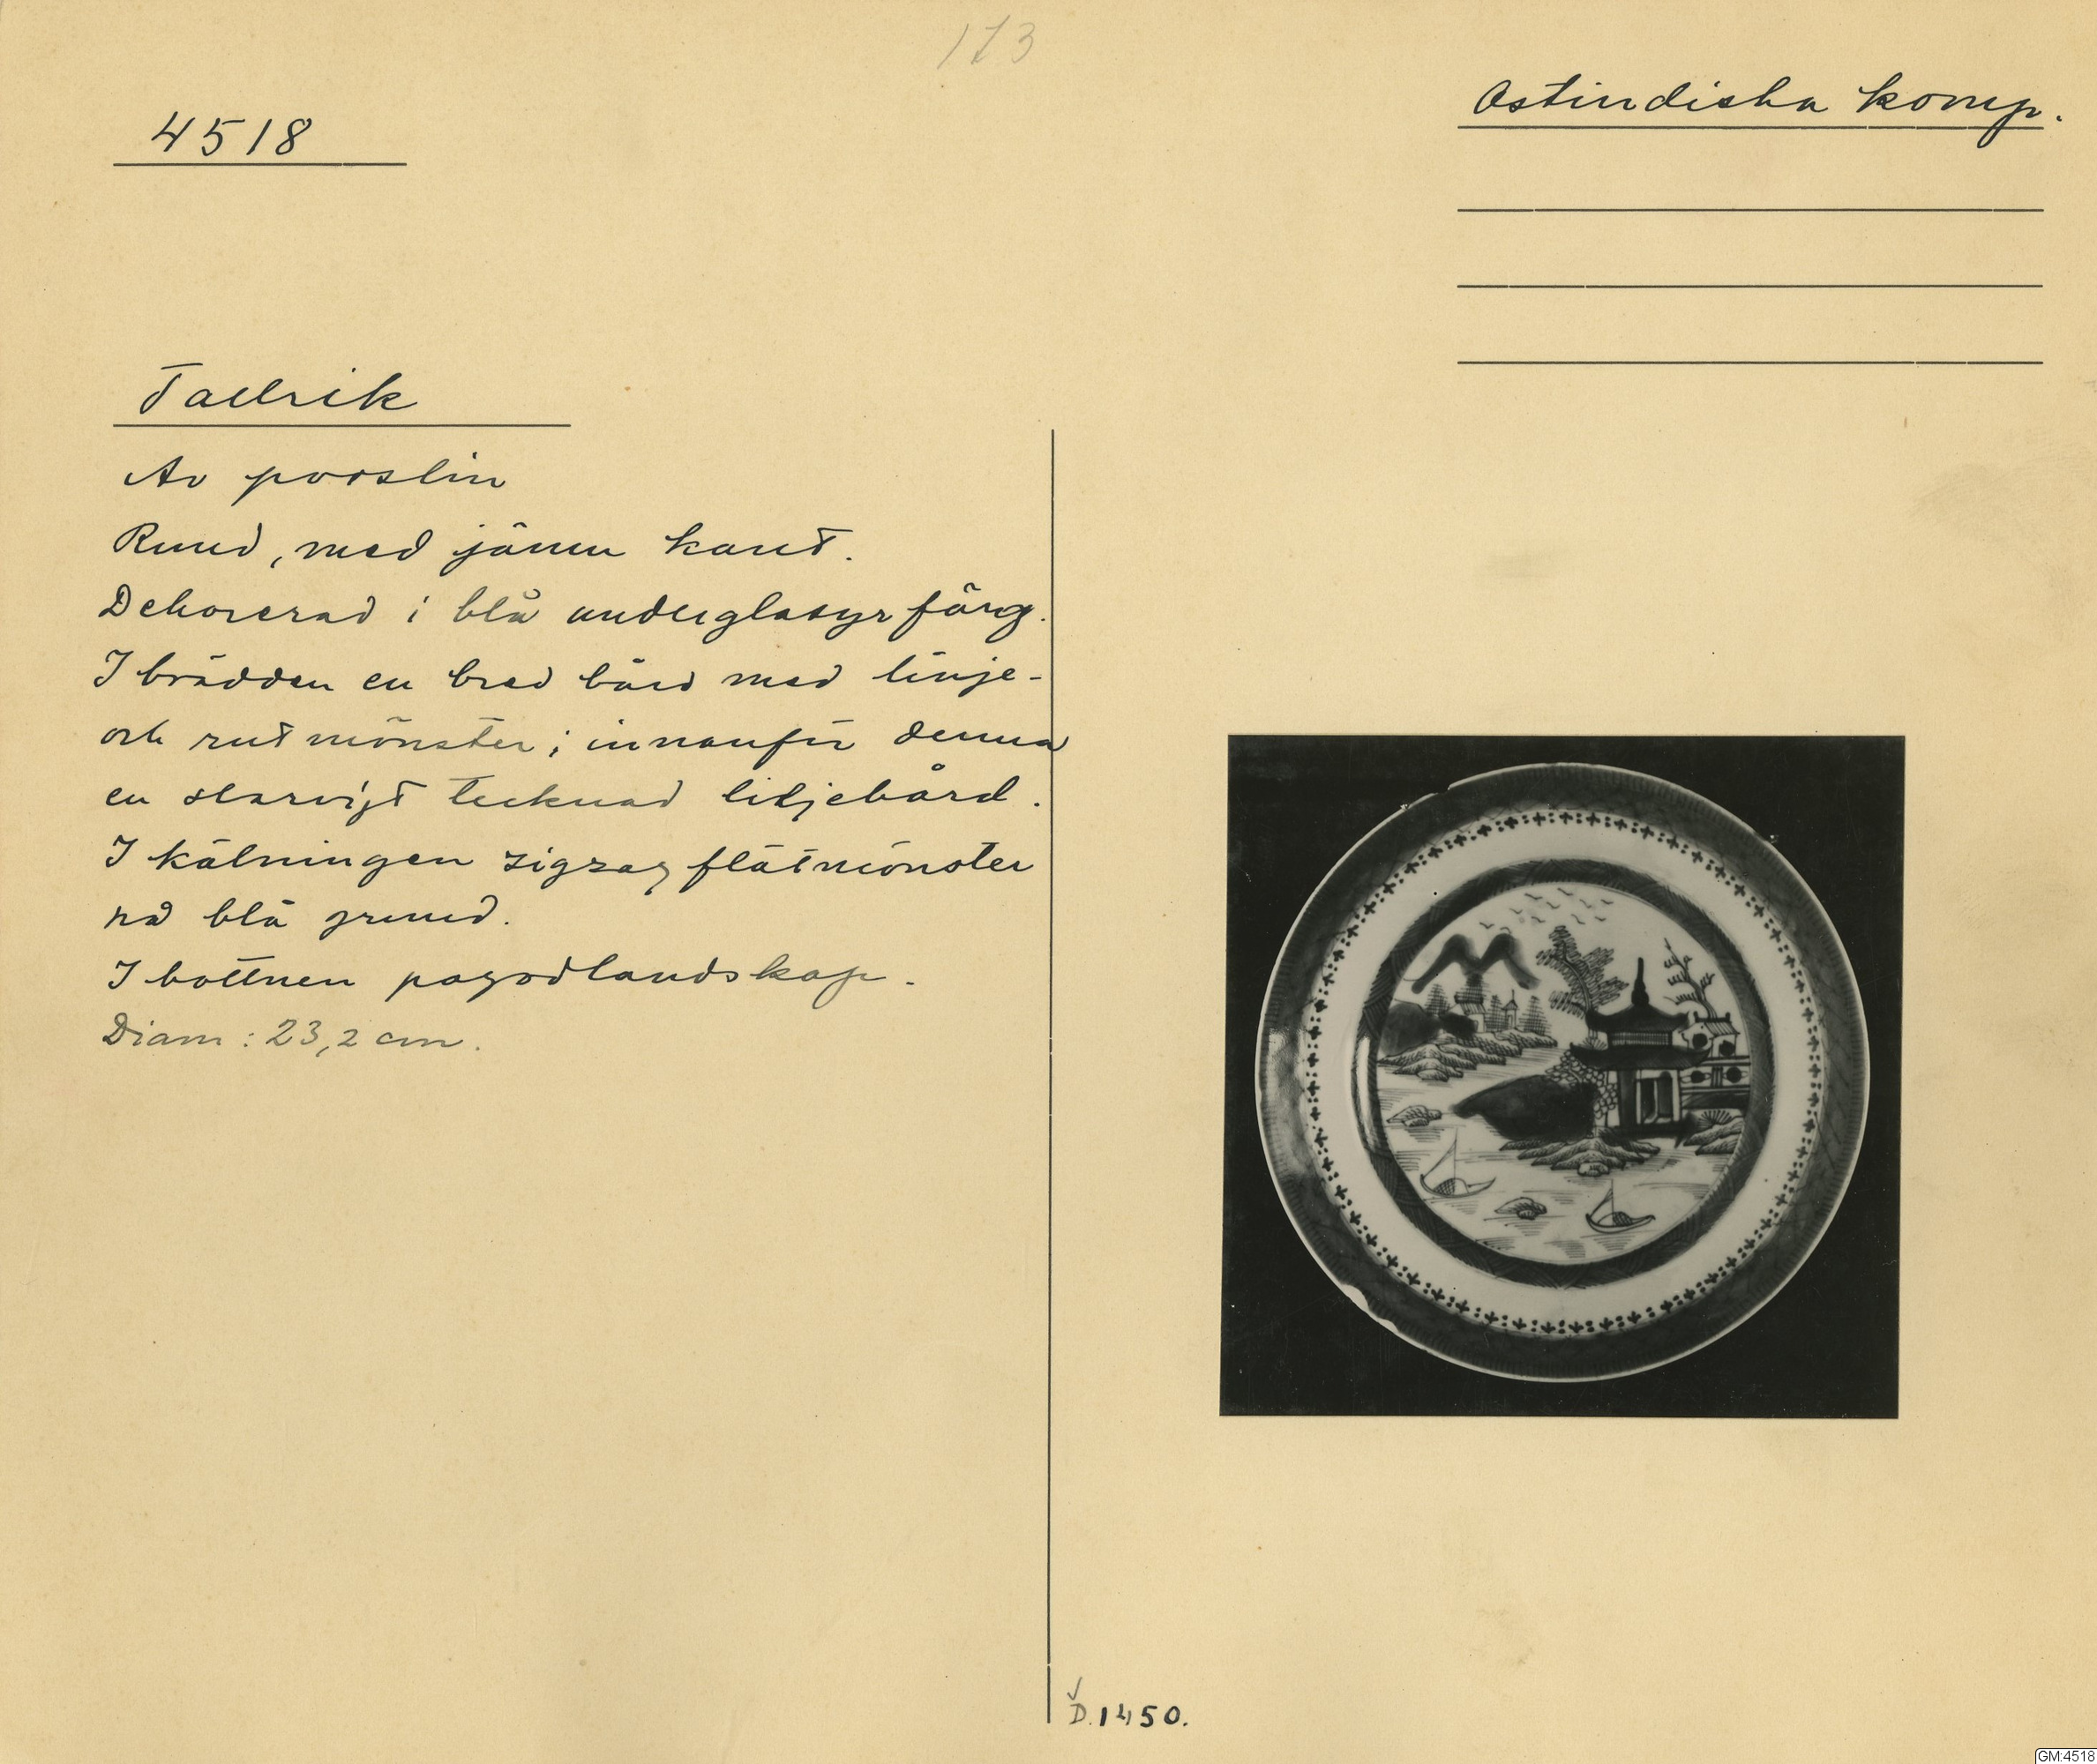 173
4518
Ostindiska komp.
Tallrik
Av porslin
Rund, med jämn kant.
Dekorerad i blå underglasyrfärg.
I brädden en bred bård med linje-
och rutmönster; innanför denna
en slarvigt tecknad liljebård.
I kälningen zigzag flätmönster
på blå grund.
I bottnen pagodlandskap.
Diam: 23,2 cm.
D.1450.
GM:4518